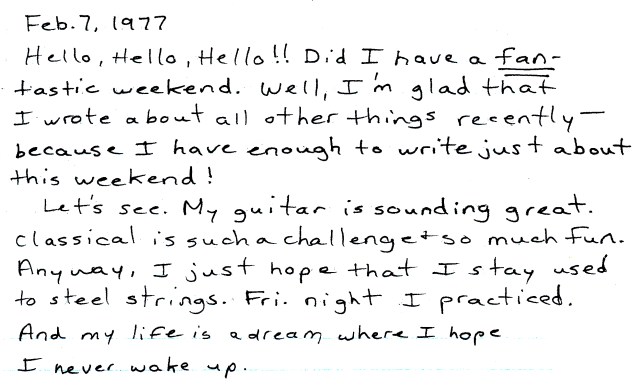 Feb. 7, 1977
Hello, Hello, Hello!! Did I have a fan-
tastic weekend. Well, I'm glad that
I wrote about all other things recently—
because I have enough to write just about
this weekend!
Let's see. My guitar is sounding great.
Classical is such a challenge + so much fun.
Anyway, I just hope that I stay used
to steel strings. Fri. night I practiced.
And my life is a dream where I hope
I never wake up.